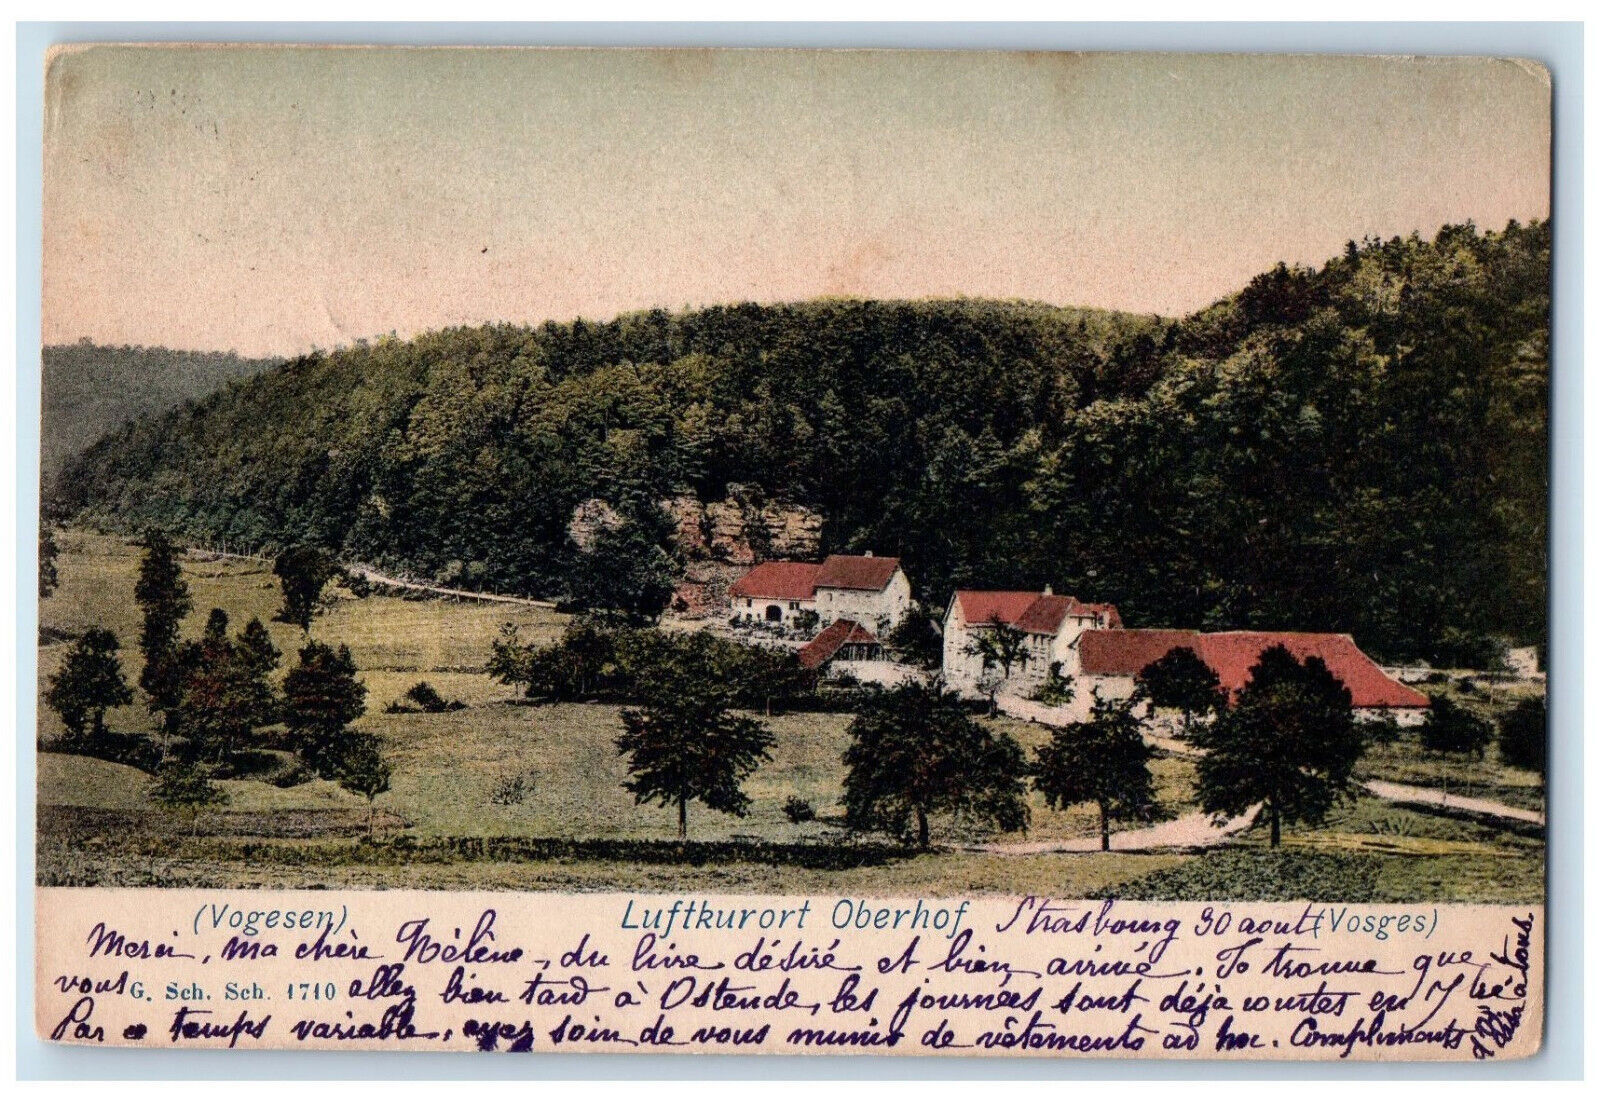 (Vogesen) Luftkurort Oberhof (Vosges)
Strasbourg 30 aout
Merci, ma chère Hélène, du livre désiré et bien arrivé. Je trouve que
vous allez bien tard à Ostende, les journées sont déjà courtes en 7
G. Sch. Sch. 1710
Par ce temps variable, ayez soin de vous munir de vêtements ad hoc. Compliments
à tous.